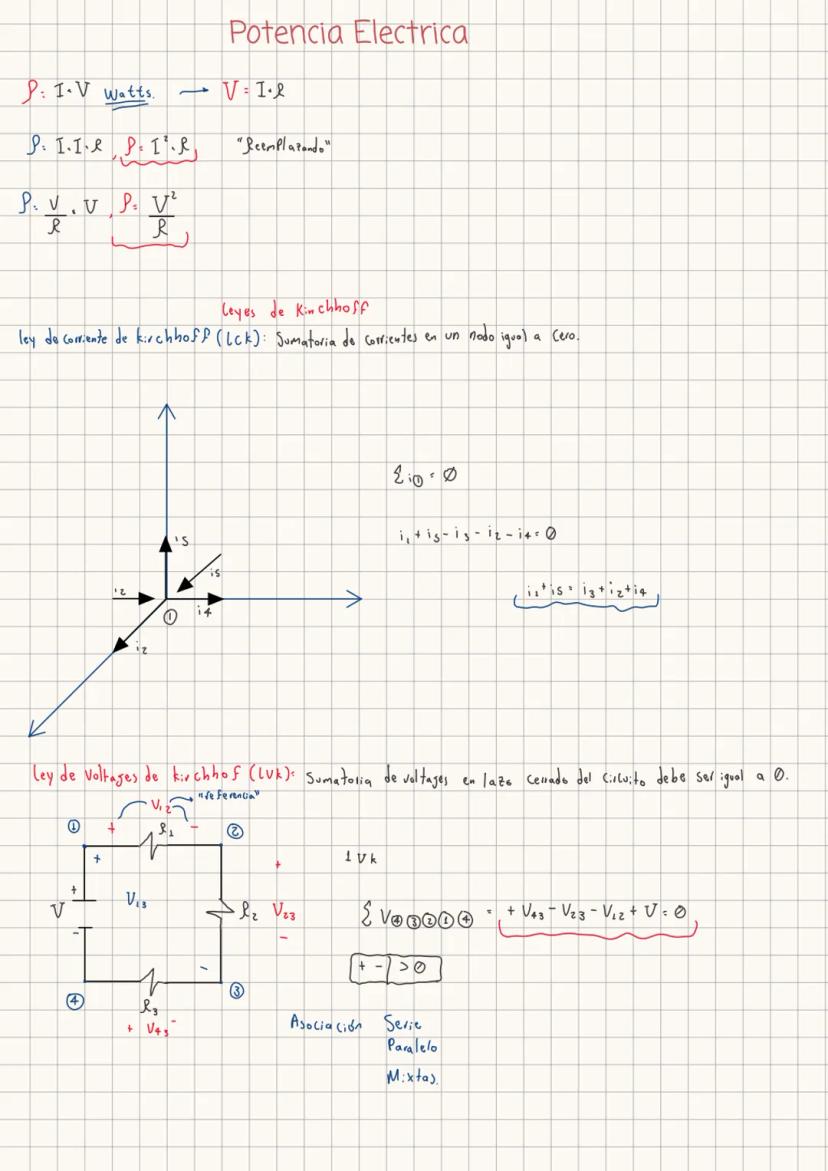 Potencia Electrica
P: I·V Watts. → V = I·R
P: I·I·R, P: I²·R, "Reemplazando"
P: V/R · V, P: V²/R
Leyes de Kinchhoff
ley de corriente de kirchhoff (LCk): Sumatoria de corrientes en un nodo igual a Cero.
Σi① = Ø
i₁ + i5 - i3 - i2 - i4 = Ø
i5
i5
i₁ + i5 = i3 + i2 + i4
i2
①
i4
i2
Ley de Voltages de kirchhof (LVk): Sumatoria de voltages en lazo cerrado del Circuito debe ser igual a Ø.
"referencia"
V₁₂
① + R₁ - ②
+
+
1Vk
+
V
V₁₃
R₂
V₂₃
Σ V④③②①④ = + V₄₃ - V₂₃ - V₁₂ + V = Ø
-
-
-
+ - > Ø
④
③
R₃
+ V₄₃ -
Asociación Serie
Paralelo
Mixtas.